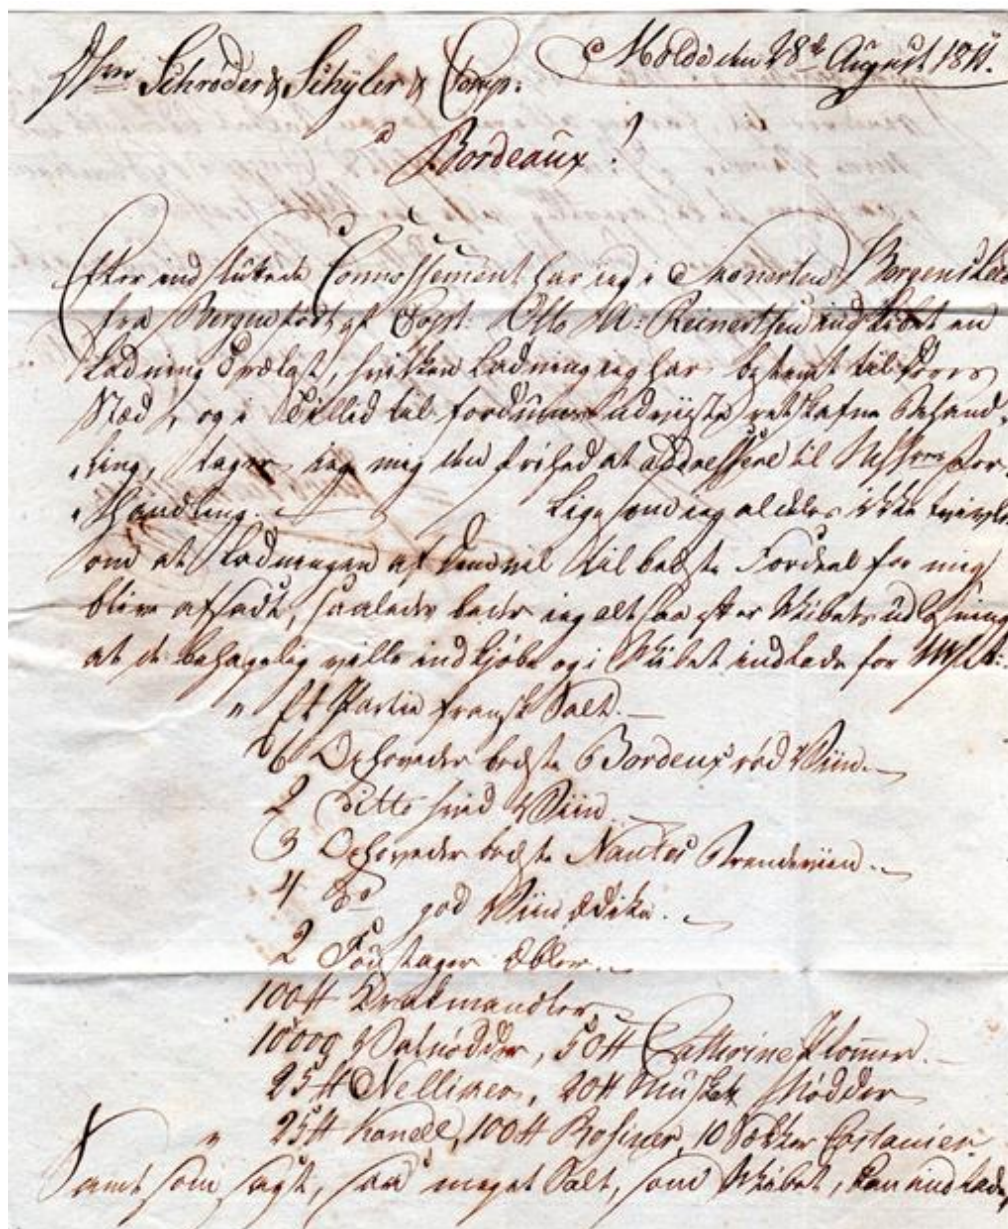 Herrer Schrøder & Schÿler & Comp:
Molde den 28de August 1811.
a
Bordeaux!
Efter indsluttede Connossement har jeg i Skonerten Bergens
fra Bergen ført af Capt: Otto M: Reinertsen indladet en
Ladning, hvilken Ladning jeg har bestemt til Deres
Stæd, og i Tillid til fordums udviiste retskafne Behand
ling, tager jeg mig den frihed at addressere til For
handling. Ligesom jeg aldeles ikke tvivler
om at Ladningen af Dem vil til bedste Fordeel for mig
blive afsadt, saaledes beder jeg altsaa efter Skibets udlosning
at de behagelig ville indkjøbe og i Skibet indlade for
" Et Partie fransk Salt.
6 Oxhoveder bedste Bordeux rød Viin.
2 Ditto hvid Viin
3 Oxhoveder bedste Nantes Brændeviin.
4 Do god Viin Eddike.
2 Fustager Æbler.
100 ℔ Krakmandler,
1000 Valnødder, 50 ℔ Catherine Blomer.
25 ℔ Nelliker, 20 ℔ Muskat Nødder
" 25 ℔ Kaneel, 100 ℔ Rosiner, 10 Castanier
Samt som sagt, saa meget Salt, som Skibet, kan indlade,